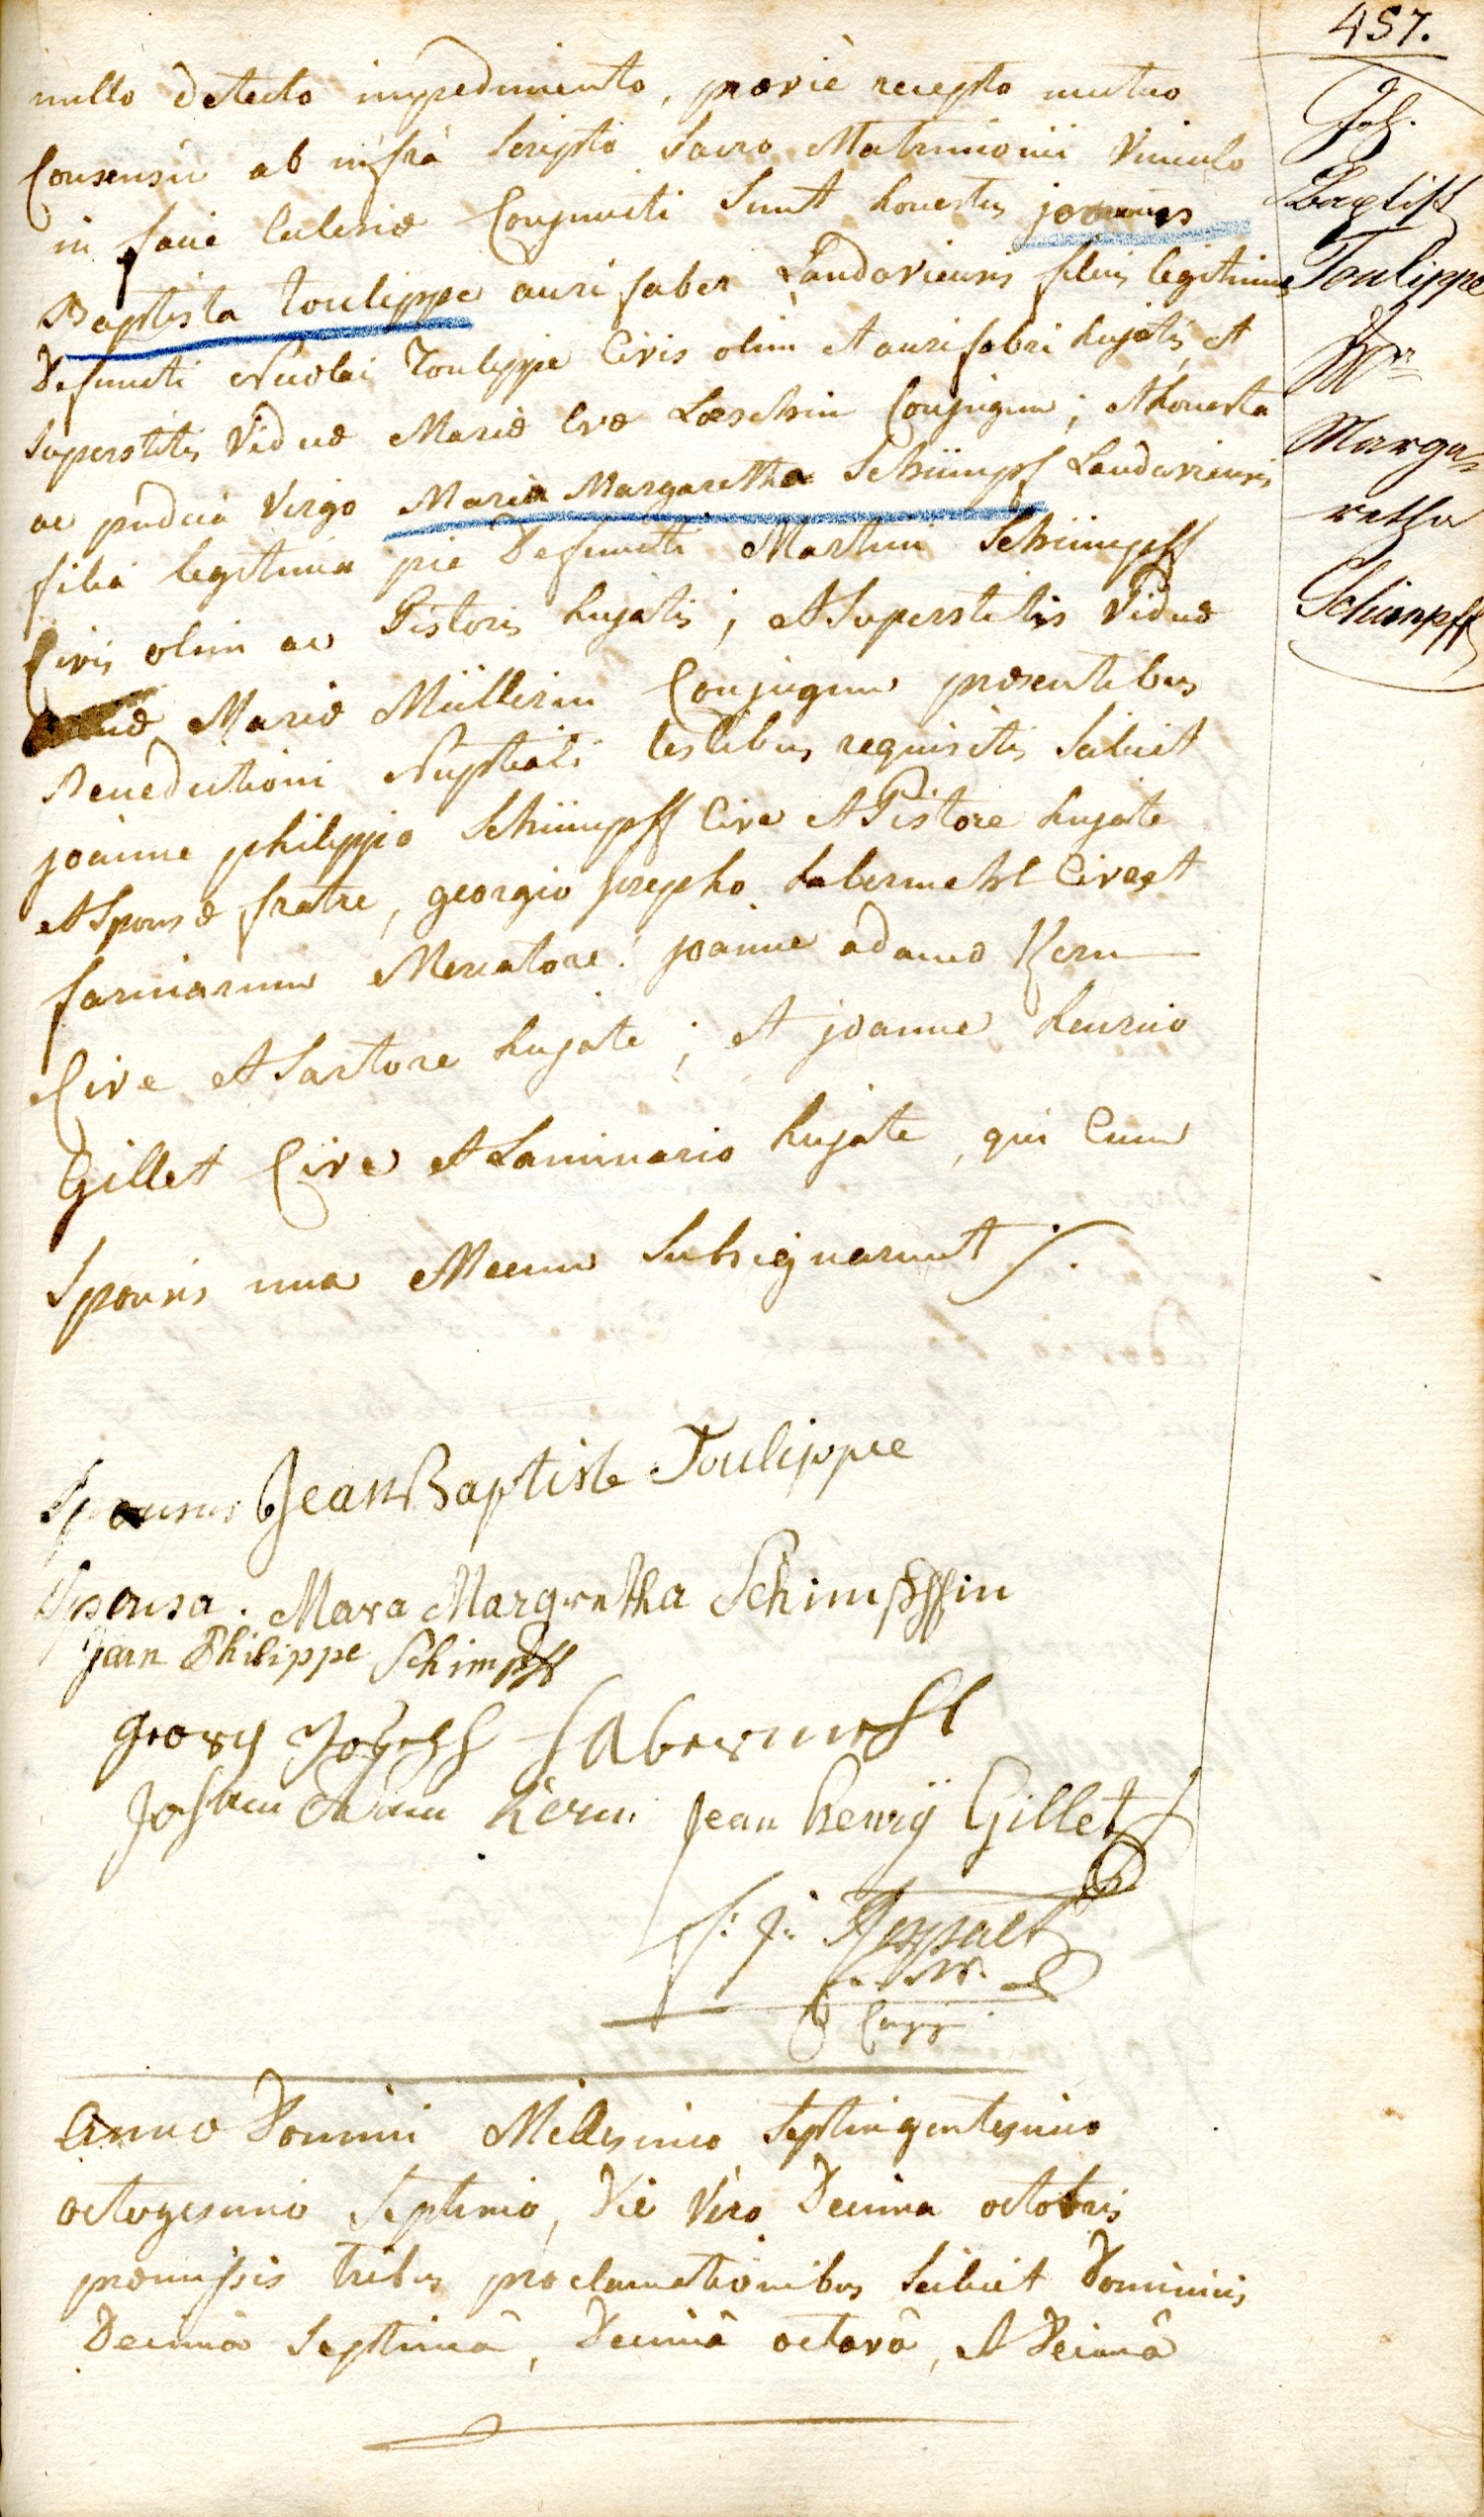 457.
nullo detecto impedimento, prævie recepto mutuo
Consensu ab infra Scripto Sacro Matrimonii Vinculo
in facie Ecclesiæ Conjuncti Sunt honestus joannes
Baptista toulippe auri faber Landaviensis filius legitimus
Defuncti Nicolai Toulippe Civis olim et aurifabri hujatis, et
Superstitis Viduæ Mariæ Evæ Læschin Conjugum; et honesta
ac pudica Virgo Maria Margaretha Schümpf Landaviensis
filia legitima pie Defuncti Martini Schümpff
Civis olim ac Pistoris hujatis; et Superstitis Viduæ
Mariæ Müllerin Conjugum præsentibus
Benedictioni Nuptiali testibus requisitis Scilicet
joanne philippo Schümpff Cive et Pistore hujate
et Sponsæ fratre, georgio josepho habermehl Cive et
farinarum Mercatore: joanne adamo Kern
Cive et Sartore hujate; et joanne henrico
Gillet Cive et Laminario hujate, qui Cum
Sponsis una Mecum Subsignarunt ⁒.
Joh.
Baptist
Toulippe
Marga=
retha
Schimpff
Sponsus Jean Baptiste Toulippe
Sponsa. Mara Margretha Schimpffin
Jean Philippe Schimpff
georg Joseph Habermehl
Johann Adam Kern Jean henrÿ Gillet
anno Domini Millesimo Septingentesimo
octogesimo Septimo, Die Vero Decima octobris
præmissis tribus proclamationibus Scilicet Dominicis
Decimâ Septimâ, Decimâ octavâ, et Decimâ